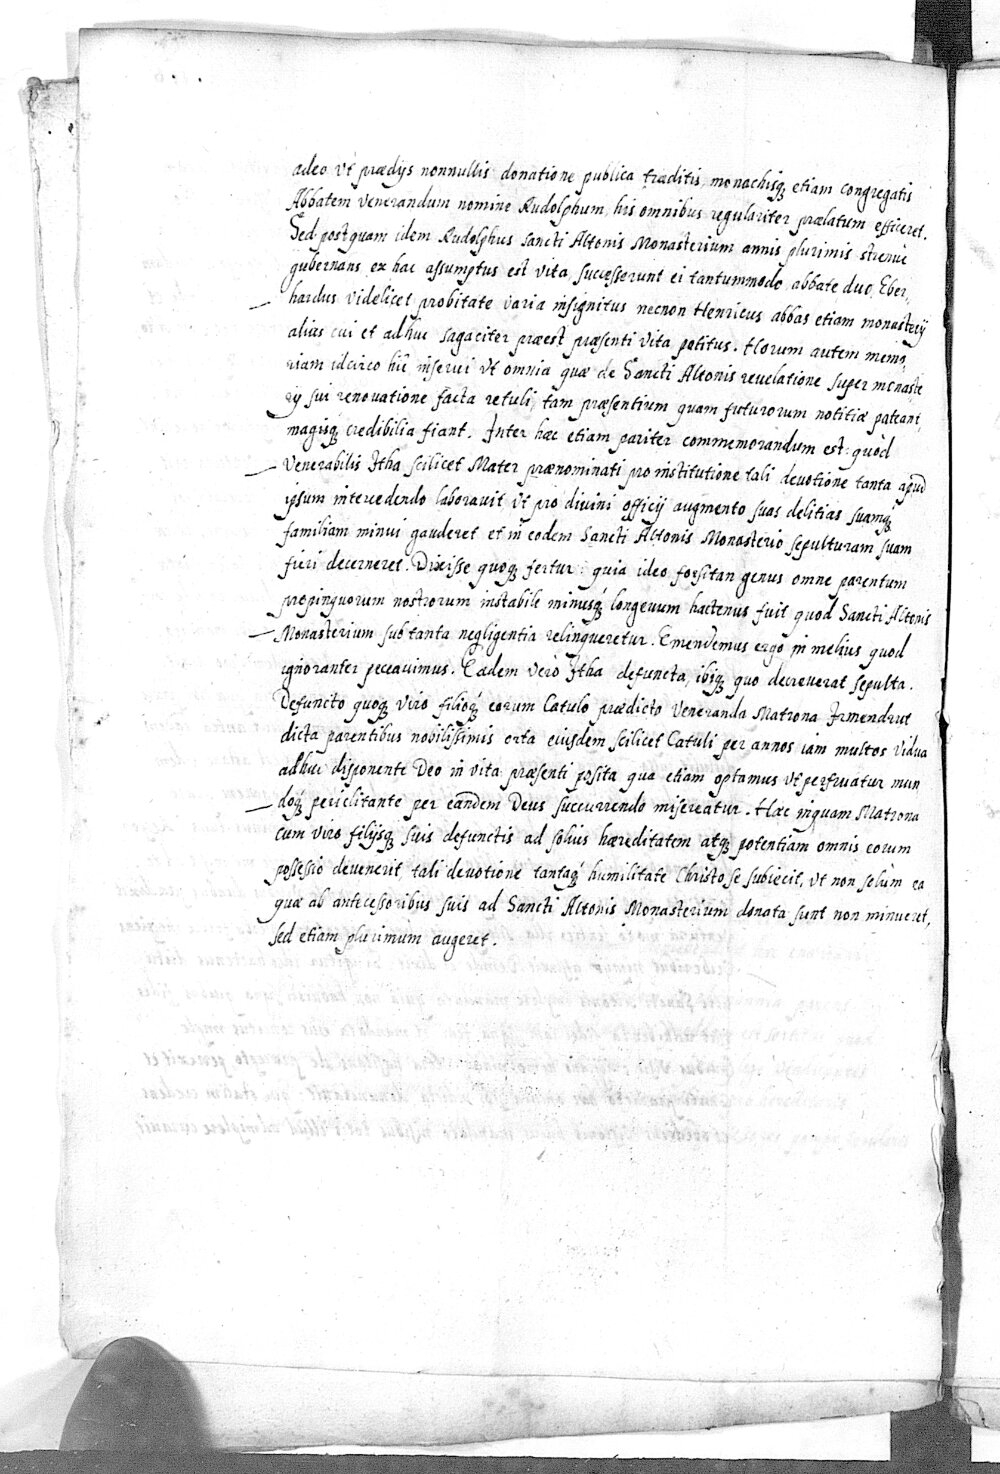 adeo vt prædijs nonnullis donatione publica traditis, monachisq; etiam congregatis
Abbatem venerandum nomine Rudolphum, his omnibus regulariter prælatum efficeret.
Sed postquam idem Rudolphus sancti Altonis Monasterium annis plurimis strenuè
gubernans ex hac assumptus est vita, successerunt ei tantummodo abbate duo, Eber,
hardus videlicet probitate varia insignitus necnon Henricus abbas etiam monasterij
alius cui et adhuc sagaciter præest præsenti vita potitus. Horum autem memo,
riam idcirco hîc inserui vt omnia quæ de Sancti Altonis reuelatione super monaste
rij sui renouatione facta retuli, tam præsentium quam futurorum notitiæ pateant,
magisq; credibilia fiant. Inter hæc etiam pariter commemorandum est: quòd
Venerabilis Itha scilicet Mater prænominati pro institutione tali deuotione tanta apud
ipsum intercedendo laborauit vt pro diuini officij augmento suas delitias suamq́;
familiam minui gauderet et in eodem Sancti Altonis Monasterio sepulturam suam
fieri decerneret. Dixisse quoq; fertur: quia ideo forsitan genus omne parentum
propinquorum nostrorum instabile minusq́; longeuum hactenus fuit quod Sancti Altonis
Monasterium sub tanta negligentia relinqueretur. Emendemus ergo in melius quod
ignoranter peccauimus. Eadem verò Itha defuncta, ibiq; quo decreuerat sepulta.
Defuncto quoq; viro filioq́; eorum Catulo prædicto Veneranda Matrona Irmendrut
dicta parentibus nobilissimis orta eiusdem scilicet Catuli per annos iam multos vidua
adhuc disponente Deo in vita præsenti posita qua etiam optamus vt perfruatur mun
doq́; periclitante per eandem Deus succurrendo misereatur. Hæc inquam Matrona
cum viro filijsq; suis defunctis ad solius hæreditatem atq; potentiam omnis eorum
possessio deuenerit, tali deuotione tantaq́; humilitate Christo se subiecit, vt non solùm ea
quæ ab antecessoribus suis ad Sancti Altonis Monasterium donata sunt non minueret,
sed etiam plurimum augeret.